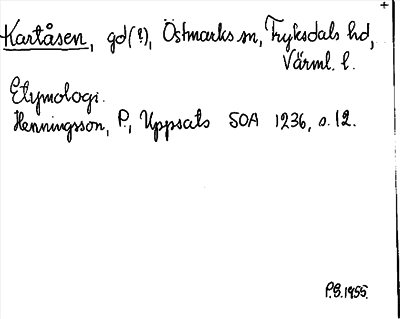 +
Kartåsen, gd(?), Östmarks sn, Fryksdals hd,
Värml. l.
Etymologi.
Henningsson, P., Uppsats SOA 1236, s. 12.
P.G. 1955.